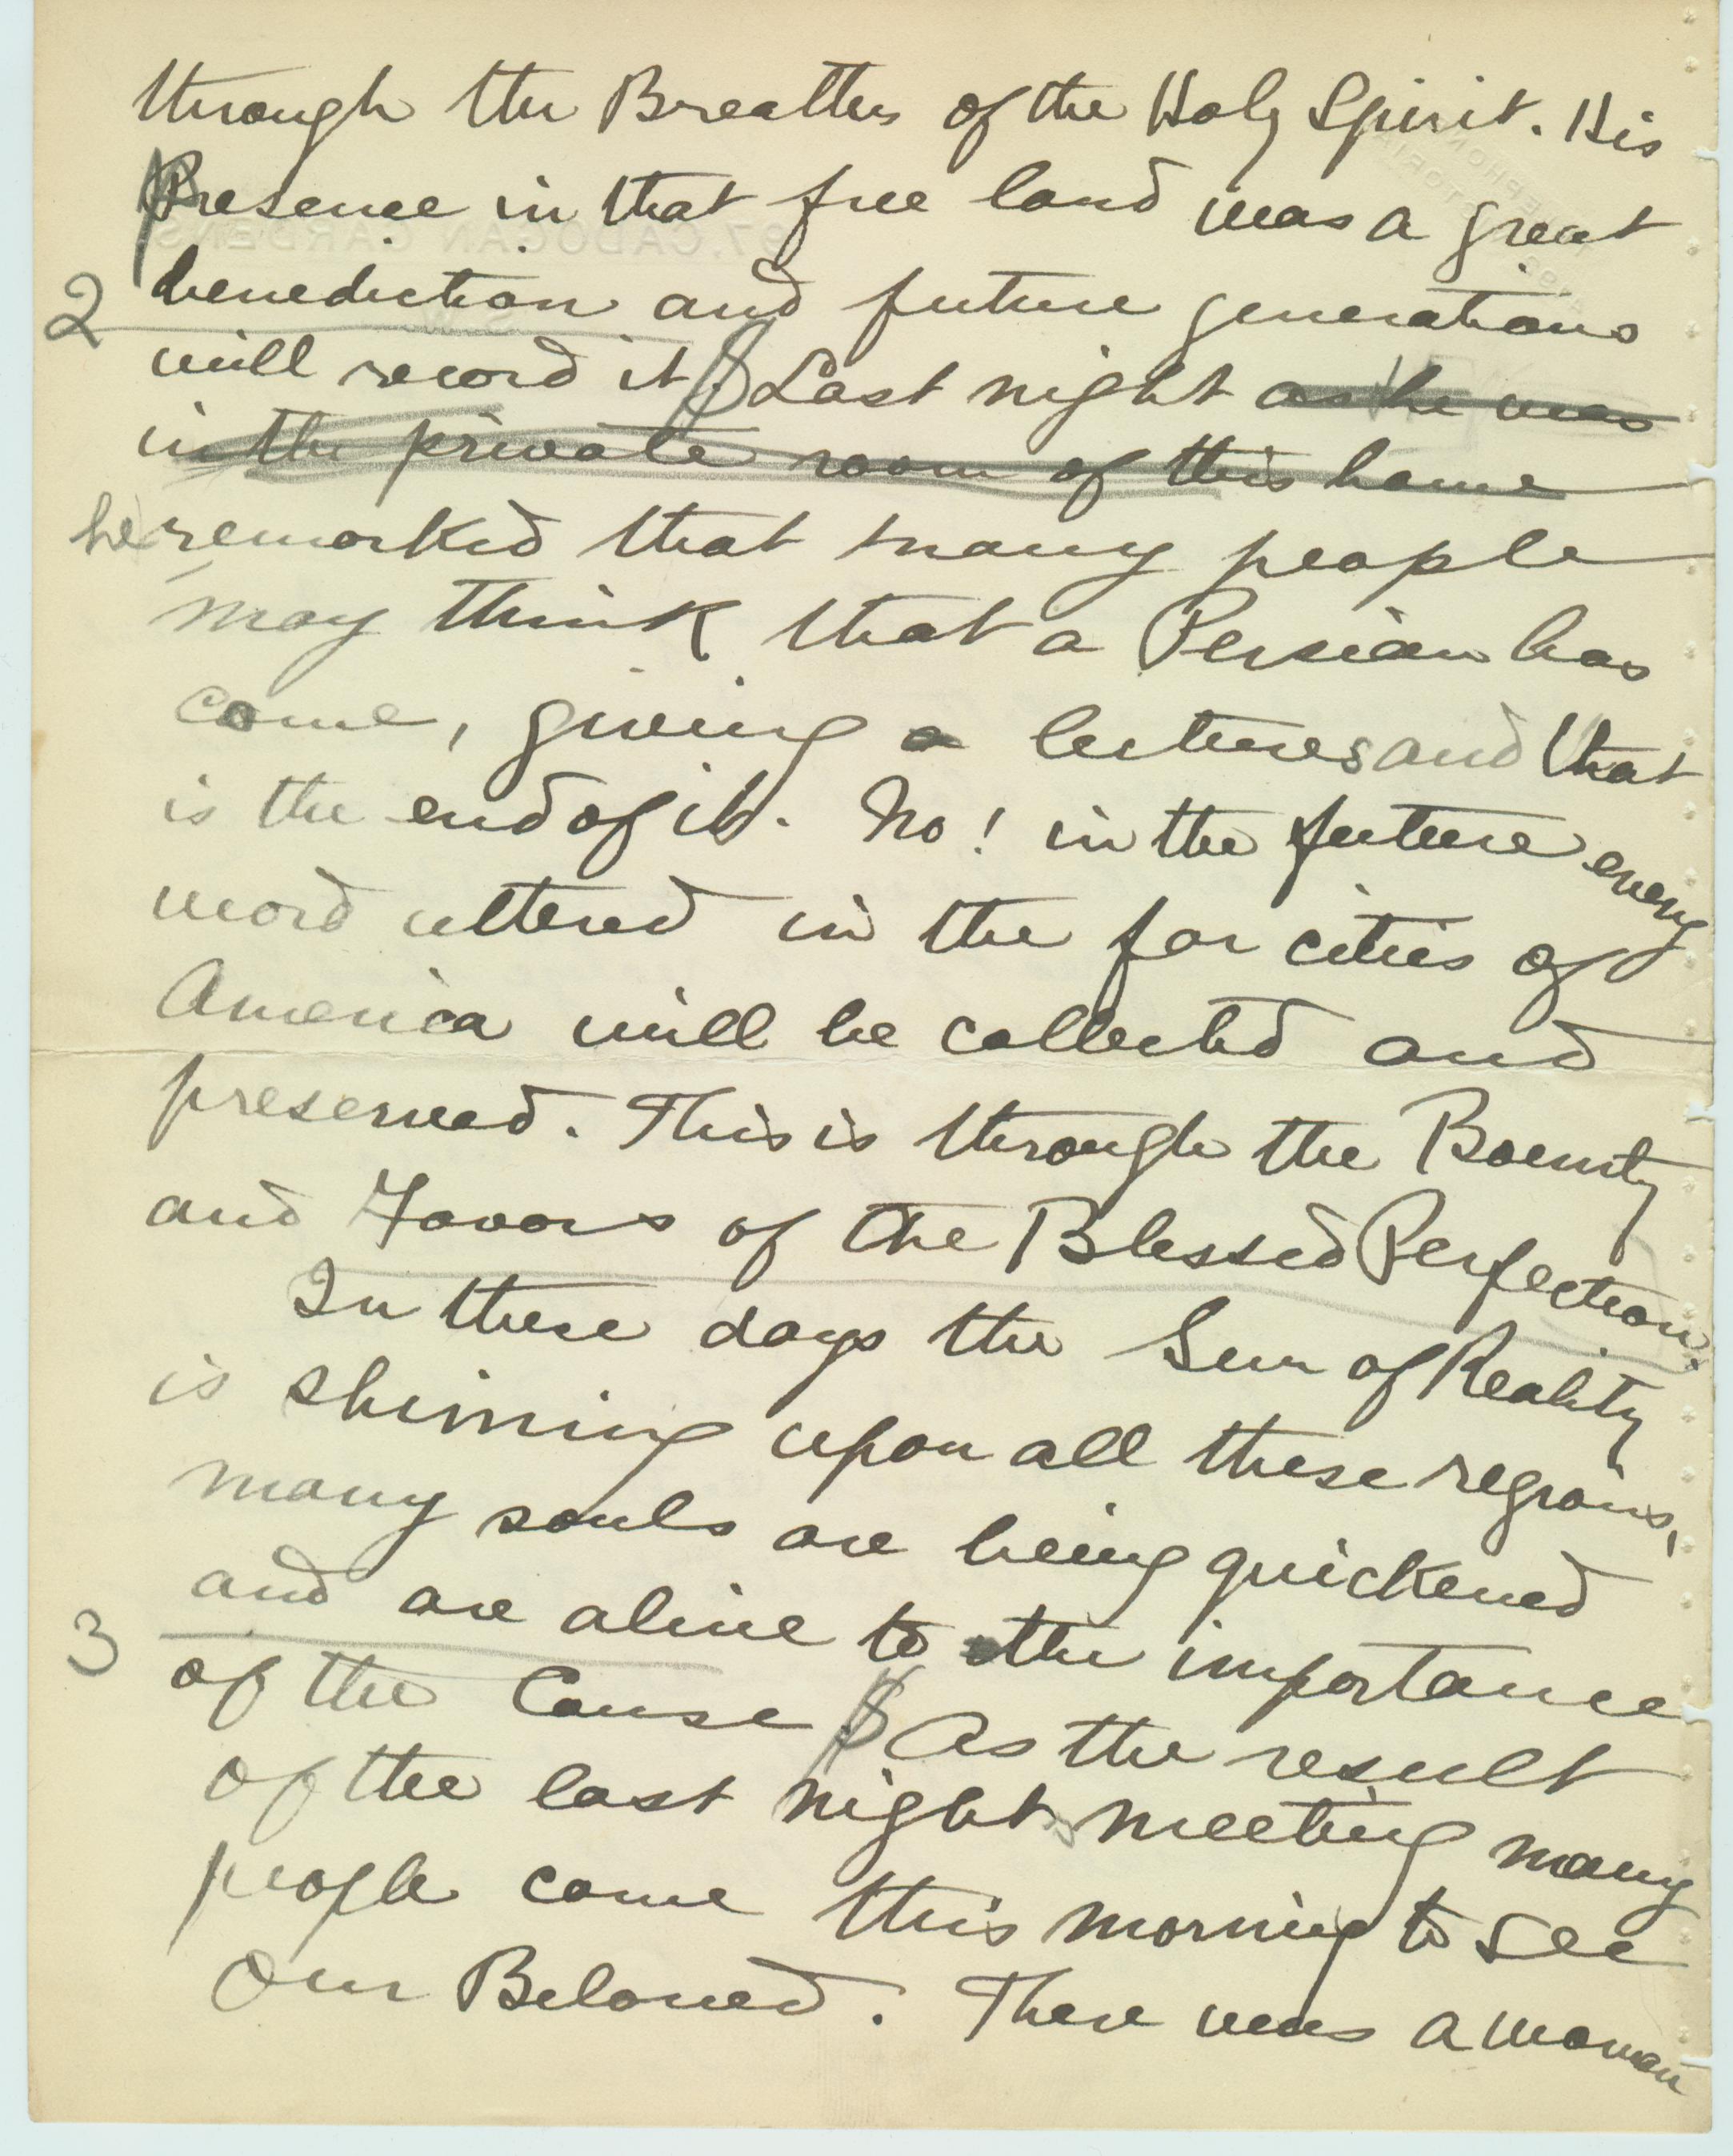 through the Breaths of the Holy Spirit. His
Presence in that free land was a great
2 benediction and future generations
will record it. Last night as he was
in the private room of this home
he remarked that many people
may think that a Persian has
come, giving a lectures and that
is the end of it. No! in the future every
word uttered in the far cities of
America will be collected and
preserved. This is through the Bounty
and Favors of the Blessed Perfection.
In these days the Sun of Reality
is shinning upon all these regions,
many souls are being quickened
and are alive to the importance
3 of the Cause. As the result
of the last night's meeting many
people came this morning to see
Our Beloved. There was a woman
97, CADOGAN GARDENS